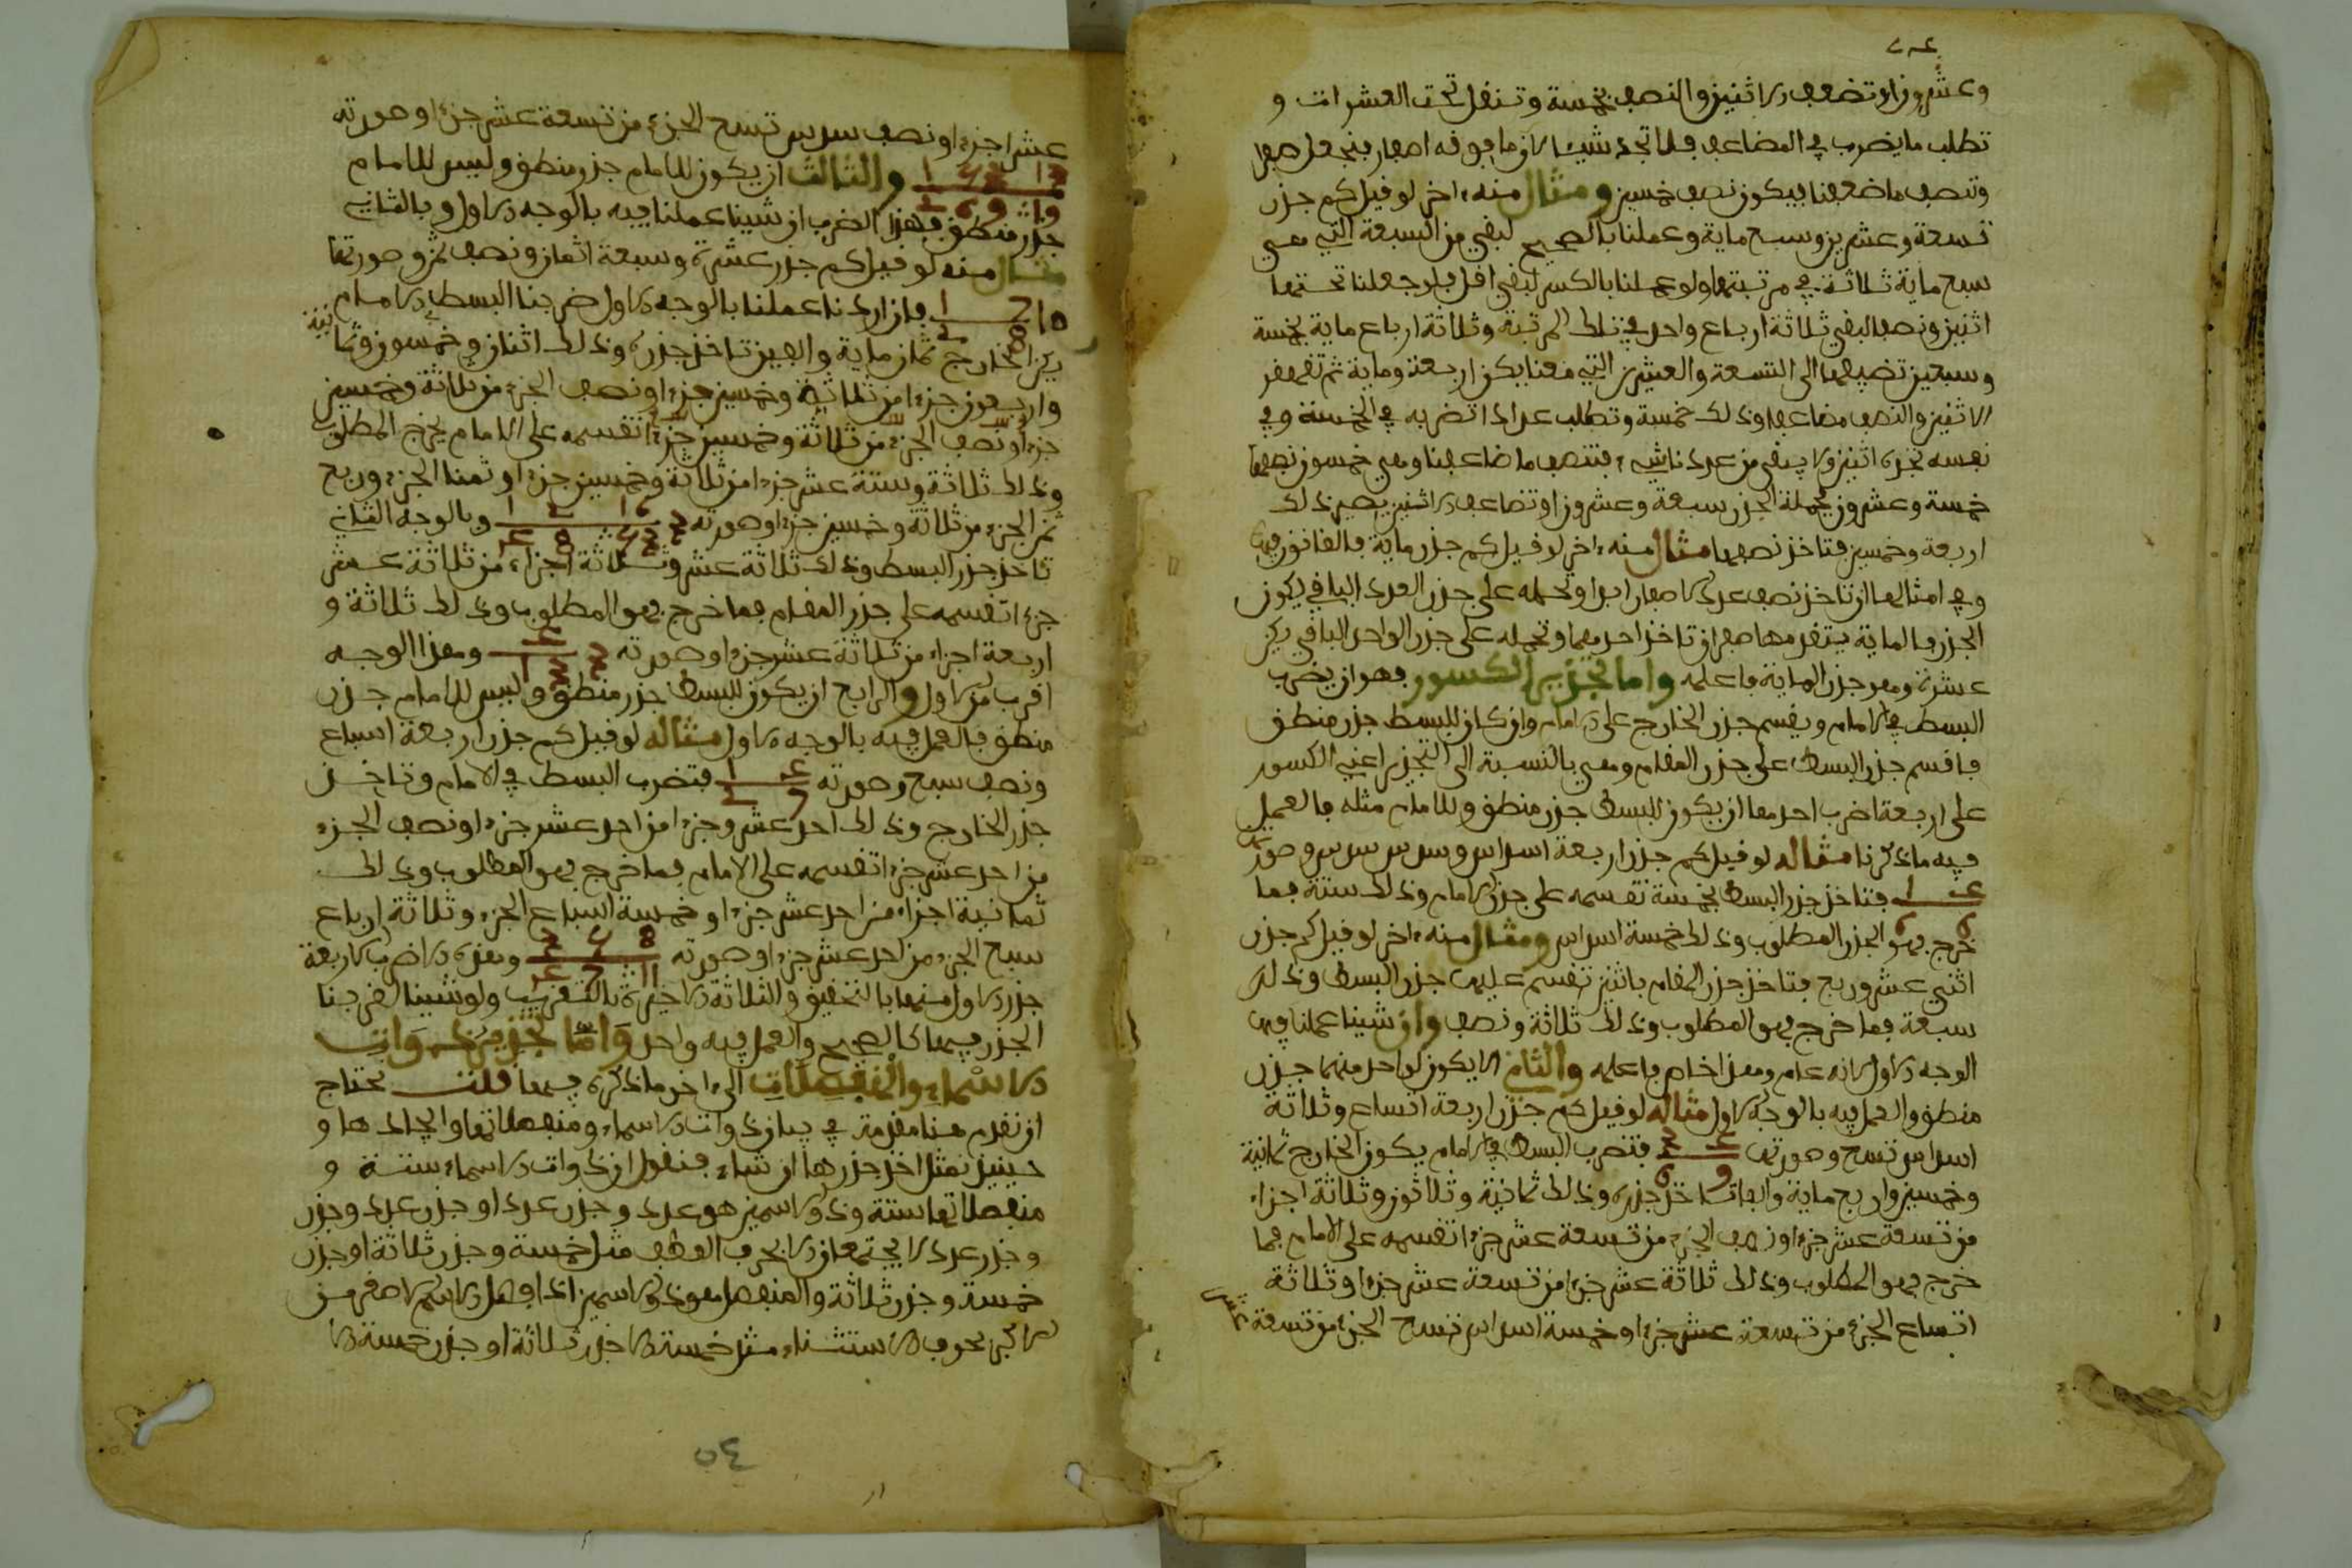 وعشرون او تضعف الاثنين والنصف بخمسة وتنقل تحت العشرات و
تطلب ما يضرب في المضاعف فلا تجد شيئا لان ما فوقه اصفار فتجعل صفرا
وتنصف ما ضعفنا فيكون نصف خمسين ومثال منه اخر لو قيل كم جذر
تسعة وعشرين وسبع ماية وعملنا بالصحيح لبقي من السبعة التي هي
سبع ماية ثلاثة في مرتبتها ولو عملنا بالكسر لبقي اقل فلو جعلنا تحتها
اثنين ونصفا لبقي ثلاثة ارباع واحد في تلك المرتبة وثلاثة ارباع ماية بخمسة
وسبعين تضيفها الى التسعة والعشرين التي معنا يكن اربعة وماية ثم تقهقر
الاثنين والنصف مضاعفا وذلك خمسة وتطلب عددا تضربه في الخمسة وفي
نفسه تجده اثنين ولا يبقى من عددنا شيء فتنصف ما ضاعفنا وهي خمسون نصفها
خمسة وعشرون فجملة الجذر سبعة وعشرون او تضاعف الاثنين يصير ذلك
اربعة وخمسين فتاخذ نصفها مثال منه اخر لو قيل كم جذر ماية فالقانون فيها
وفي امثالها ان تاخذ نصف عدد الاصفار ابدا وتحمله على جذر العدد الباقي يكون
الجذر فالماية يتقدمها صفران تاخذ احدهما وتحمله على جذر الواحد الباقي يكن
عشرة وهو جذر الماية فاعلمه واما تجذير الكسور فهو ان يضرب
البسط في الامام ويقسم جذر الخارج على الامام وان كان للبسط جذر منطق
فاقسم جذر البسط على جذر المقام وهي بالنسبة الى التجذير اعني الكسور
على اربعة اضرب احدها ان يكون للبسط جذر منطق وللامام مثله فالعمل
فيه ما ذكرنا مثاله لو قيل كم جذر اربعة اسداس وسدس سدس وصورته
4 1 / 6 6 فتاخذ جذر البسط بخمسة تقسمه على جذر الامام وذلك ستة فما
خرج فهو الجذر المطلوب وذلك خمسة اسداس ومثال منه اخر لو قيل كم جذر
اثني عشر وربع فتاخذ جذر المقام باثنين تقسم عليه جذر البسط وذلك
سبعة فما خرج فهو المطلوب وذلك ثلاثة ونصف وان شينا عملنا فيه
الوجه الاول لانه عام وهذا خاص فاعلمه والثاني الا يكون لواحد منهما جذر
منطق والعمل فيه بالوجه الاول مثاله لو قيل كم جذر اربعة اتساع وثلاثة
اسداس تسع وصورته 4 3 / 9 6 فتضرب البسط في الامام يكون الخارج ثمانية
وخمسين واربع ماية والفا تاخذ جذره وذلك ثمانية وثلاثون وثلاثة اجزاء
من تسعة عشر جزءا ونصف الجزء من تسعة عشر جزءا تقسمه على الامام فما
خرج فهو المطلوب وذلك ثلاثة عشر جزءا من تسعة عشر جزءا وثلاثة
اتساع الجزء من تسعة عشر جزءا وخمسة اسداس تسع الجزء من تسعة عشر
عشر جزءا ونصف سدس تسع الجزء من تسعة عشر جزءا وصورته
والثالث ان يكون للامام جذر منطق وليس للامام
جذر منطق فهذا الضرب ان شينا عملنا فيه بالوجه الاول وبالثاني
مثال منه لو قيل كم جذر عشرة وسبعة اثمان ونصف ثمن وصورتها
10 7 1 / 8 2 فان اردنا عملنا بالوجه الاول ضربنا البسط في الامام
يكن الخارج ثمان ماية والفين تاخذ جذره وذلك اثنان وخمسون وثمانية
واربعون جزءا من ثلاثة وخمسين جزءا ونصف الجزء من ثلاثة وخمسين
جزءا ونصف الجزء من ثلاثة وخمسين جزءا تقسمه على الامام يخرج المطلوب
وذلك ثلاثة وستة عشر جزءا من ثلاثة وخمسين جزءا وثمنا الجزء وربع
ثمن الجزء من ثلاثة وخمسين جزءا وصورته وبالوجه الثاني
تاخذ جذر البسط وذلك ثلاثة عشر وثلاثة اجزاء من ثلاثة عشر
جزءا تقسمه على جذر المقام فما خرج فهو المطلوب وذلك ثلاثة و
اربعة اجزاء من ثلاثة عشر جزءا وصورته 3 4 / 13 وهذا الوجه
اقرب من الاول والرابع ان يكون للبسط جذر منطق وليس للامام جذر
منطق فالعمل فيه بالوجه الاول مثاله لو قيل كم جذر اربعة اسباع
ونصف سبع وصورته 4 1 / 7 2 فتضرب البسط في الامام وتاخذ
جذر الخارج وذلك احد عشر وجزءا من احد عشر جزءا ونصف الجزء
من احد عشر جزءا تقسمه على الامام فما خرج فهو المطلوب وذلك
ثمانية اجزاء من احد عشر جزءا وخمسة اسباع الجزء وثلاثة ارباع
سبع الجزء من احد عشر جزءا وصورته وهذه الاضرب الاربعة
جذر الاول منها بالتحقيق والثلاثة الاخيرة بالتقريب ولو شينا لقربنا
الجذر فيها كالصحيح والعمل فيه واحد واما تجذير ذوات
الاسماء والمنفصلات الى اخر ما ذكره فيها قلت تحتاج
ان نقدم هنا مقدمة في بيان ذوات الاسماء ومنفصلاتها وايجادها و
حينيذ نمثل اخذ جذرها ان شاء فنقول ان ذوات الاسماء ستة و
منفصلاتها ستة وذو الاسمين هو عدد وجذر عدد او جذر عدد وجذر
وجذر عدد لا يجتمعان الا بحرف العطف مثل خمسة وجذر ثلاثة او جذر
خمسة وجذر ثلاثة والمنفصل هو ذو الاسمين اذا فصل الاسم الاصغر من
الاكبر بحرف الاستثناء مثل خمسة الا جذر ثلاثة او جذر خمسة الا
٥٤